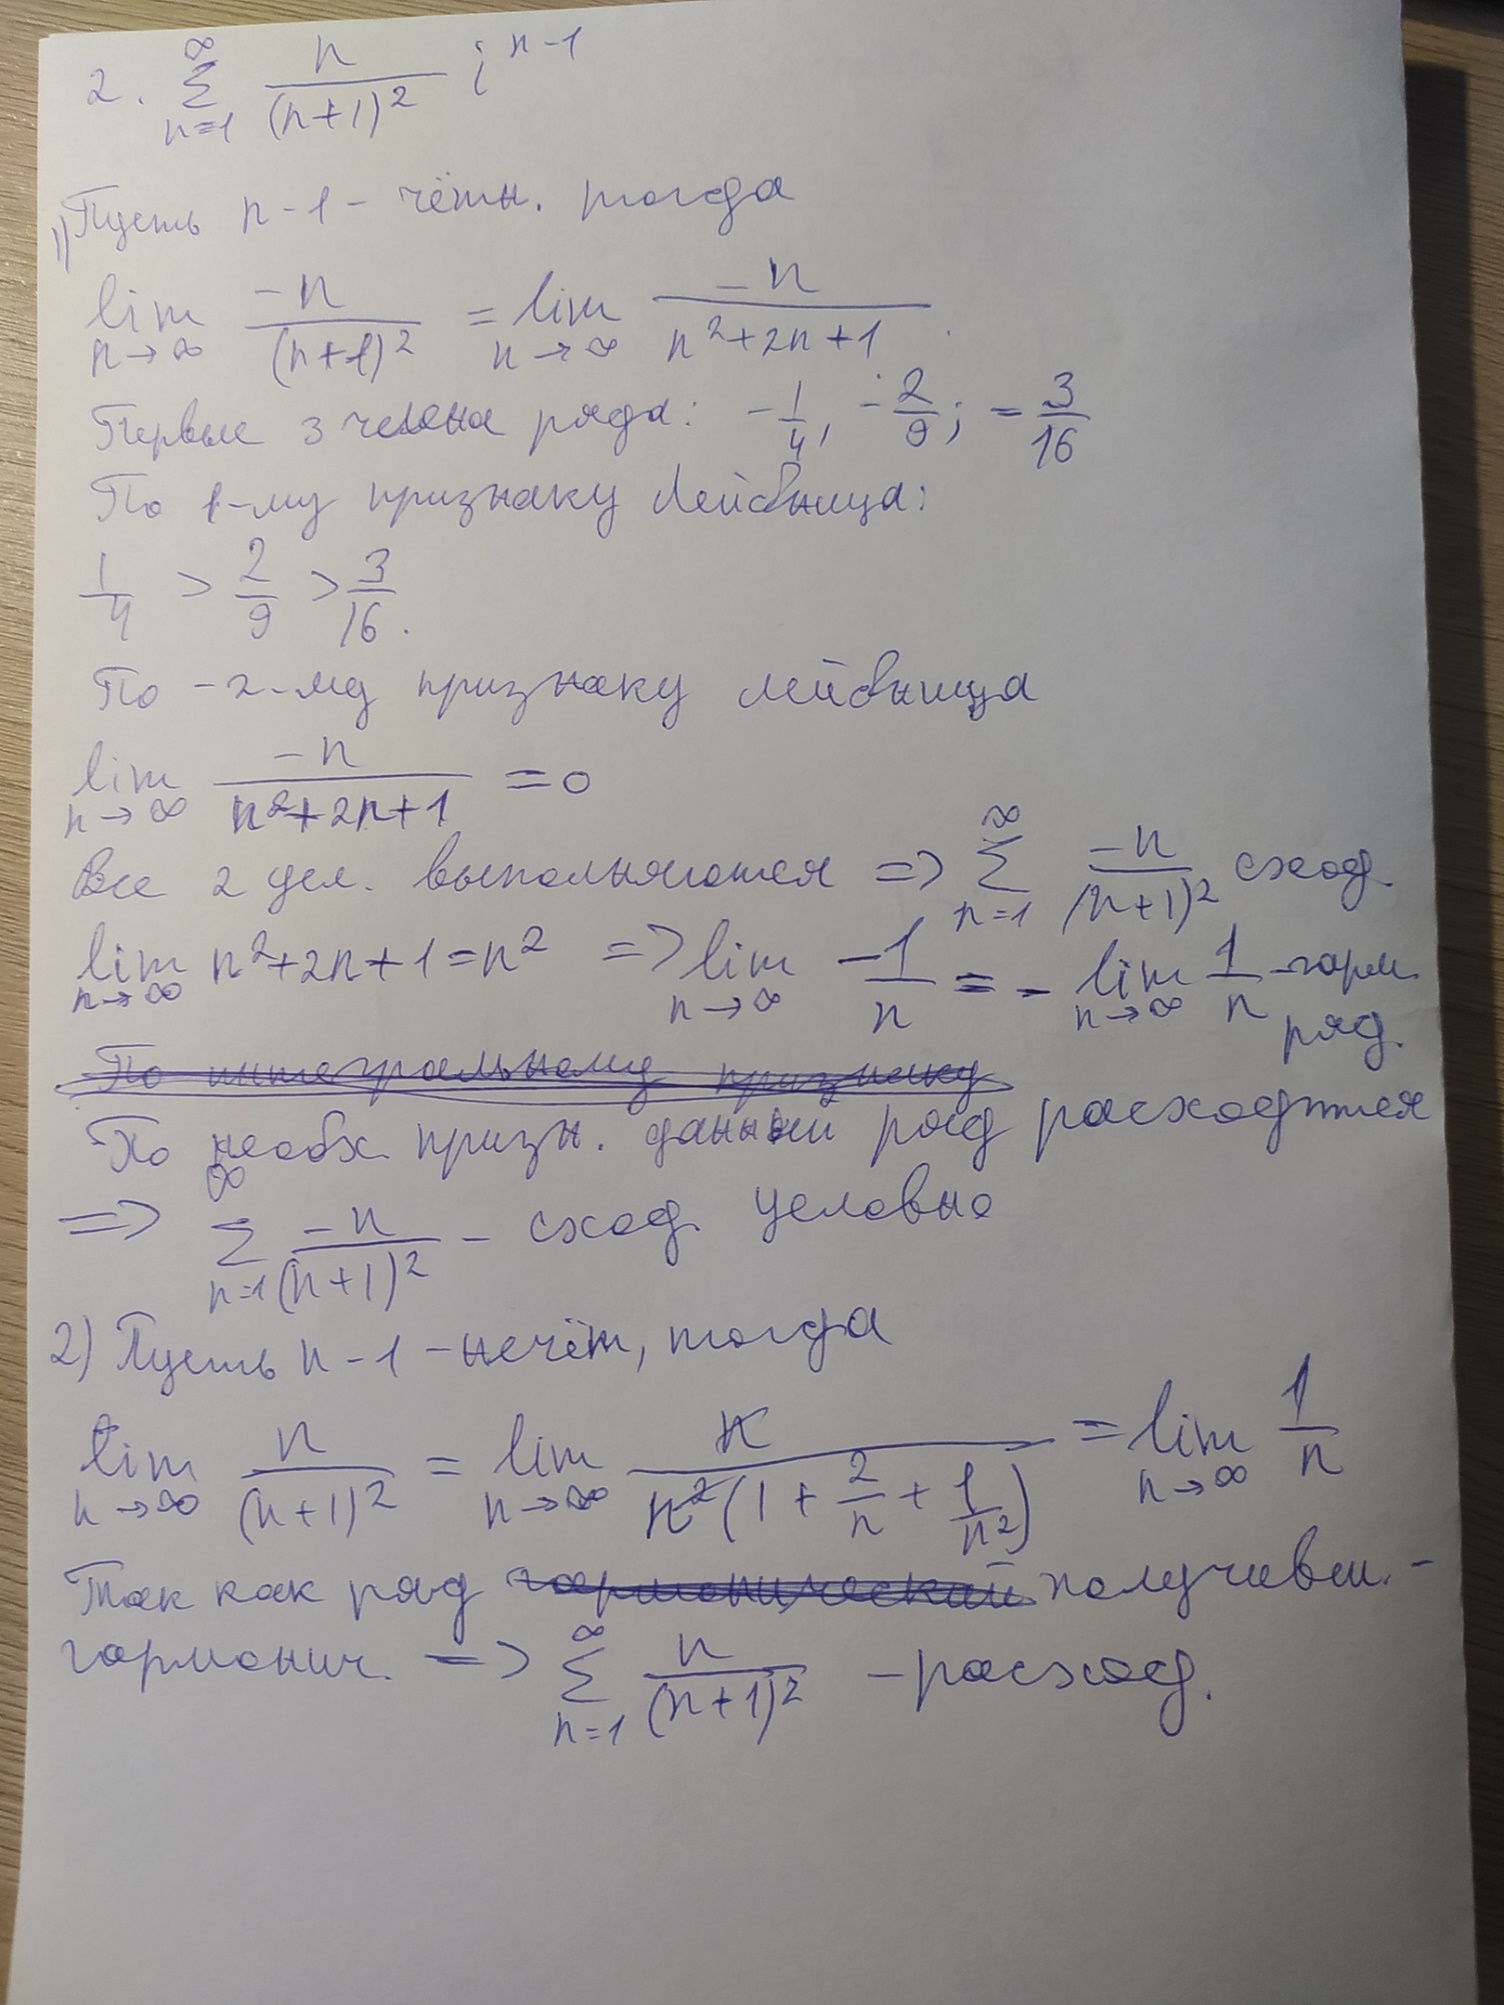 2. ∞ Σ n=1 n/(n+1)² i^(n-1)
1) Пусть n-1 - чётн. тогда
lim n→∞ -n/(n+1)² = lim n→∞ -n/(n²+2n+1).
Первые 3 члена ряда: -1/4, -2/9; -3/16
По 1-му признаку Лейбница:
1/4 > 2/9 > 3/16.
По -2-му признаку лейбница
lim n→∞ -n/(n²+2n+1) = 0
Все 2 усл. выполняются => ∞ Σ n=1 -n/(n+1)² сход.
lim n→∞ n²+2n+1 = n² => lim n→∞ -1/n = - lim n→∞ 1/n - гарм. ряд.
По интегральному признаку
По необх. призн. данный ряд расходится
=> ∞ Σ n=1 -n/(n+1)² - сход. условно
2) Пусть n-1 - нечёт, тогда
lim n→∞ n/(n+1)² = lim n→∞ n/(n²(1 + 2/n + 1/n²)) = lim n→∞ 1/n
Так как ряд гармонический получивш. -
гармонич. => ∞ Σ n=1 n/(n+1)² - расход.